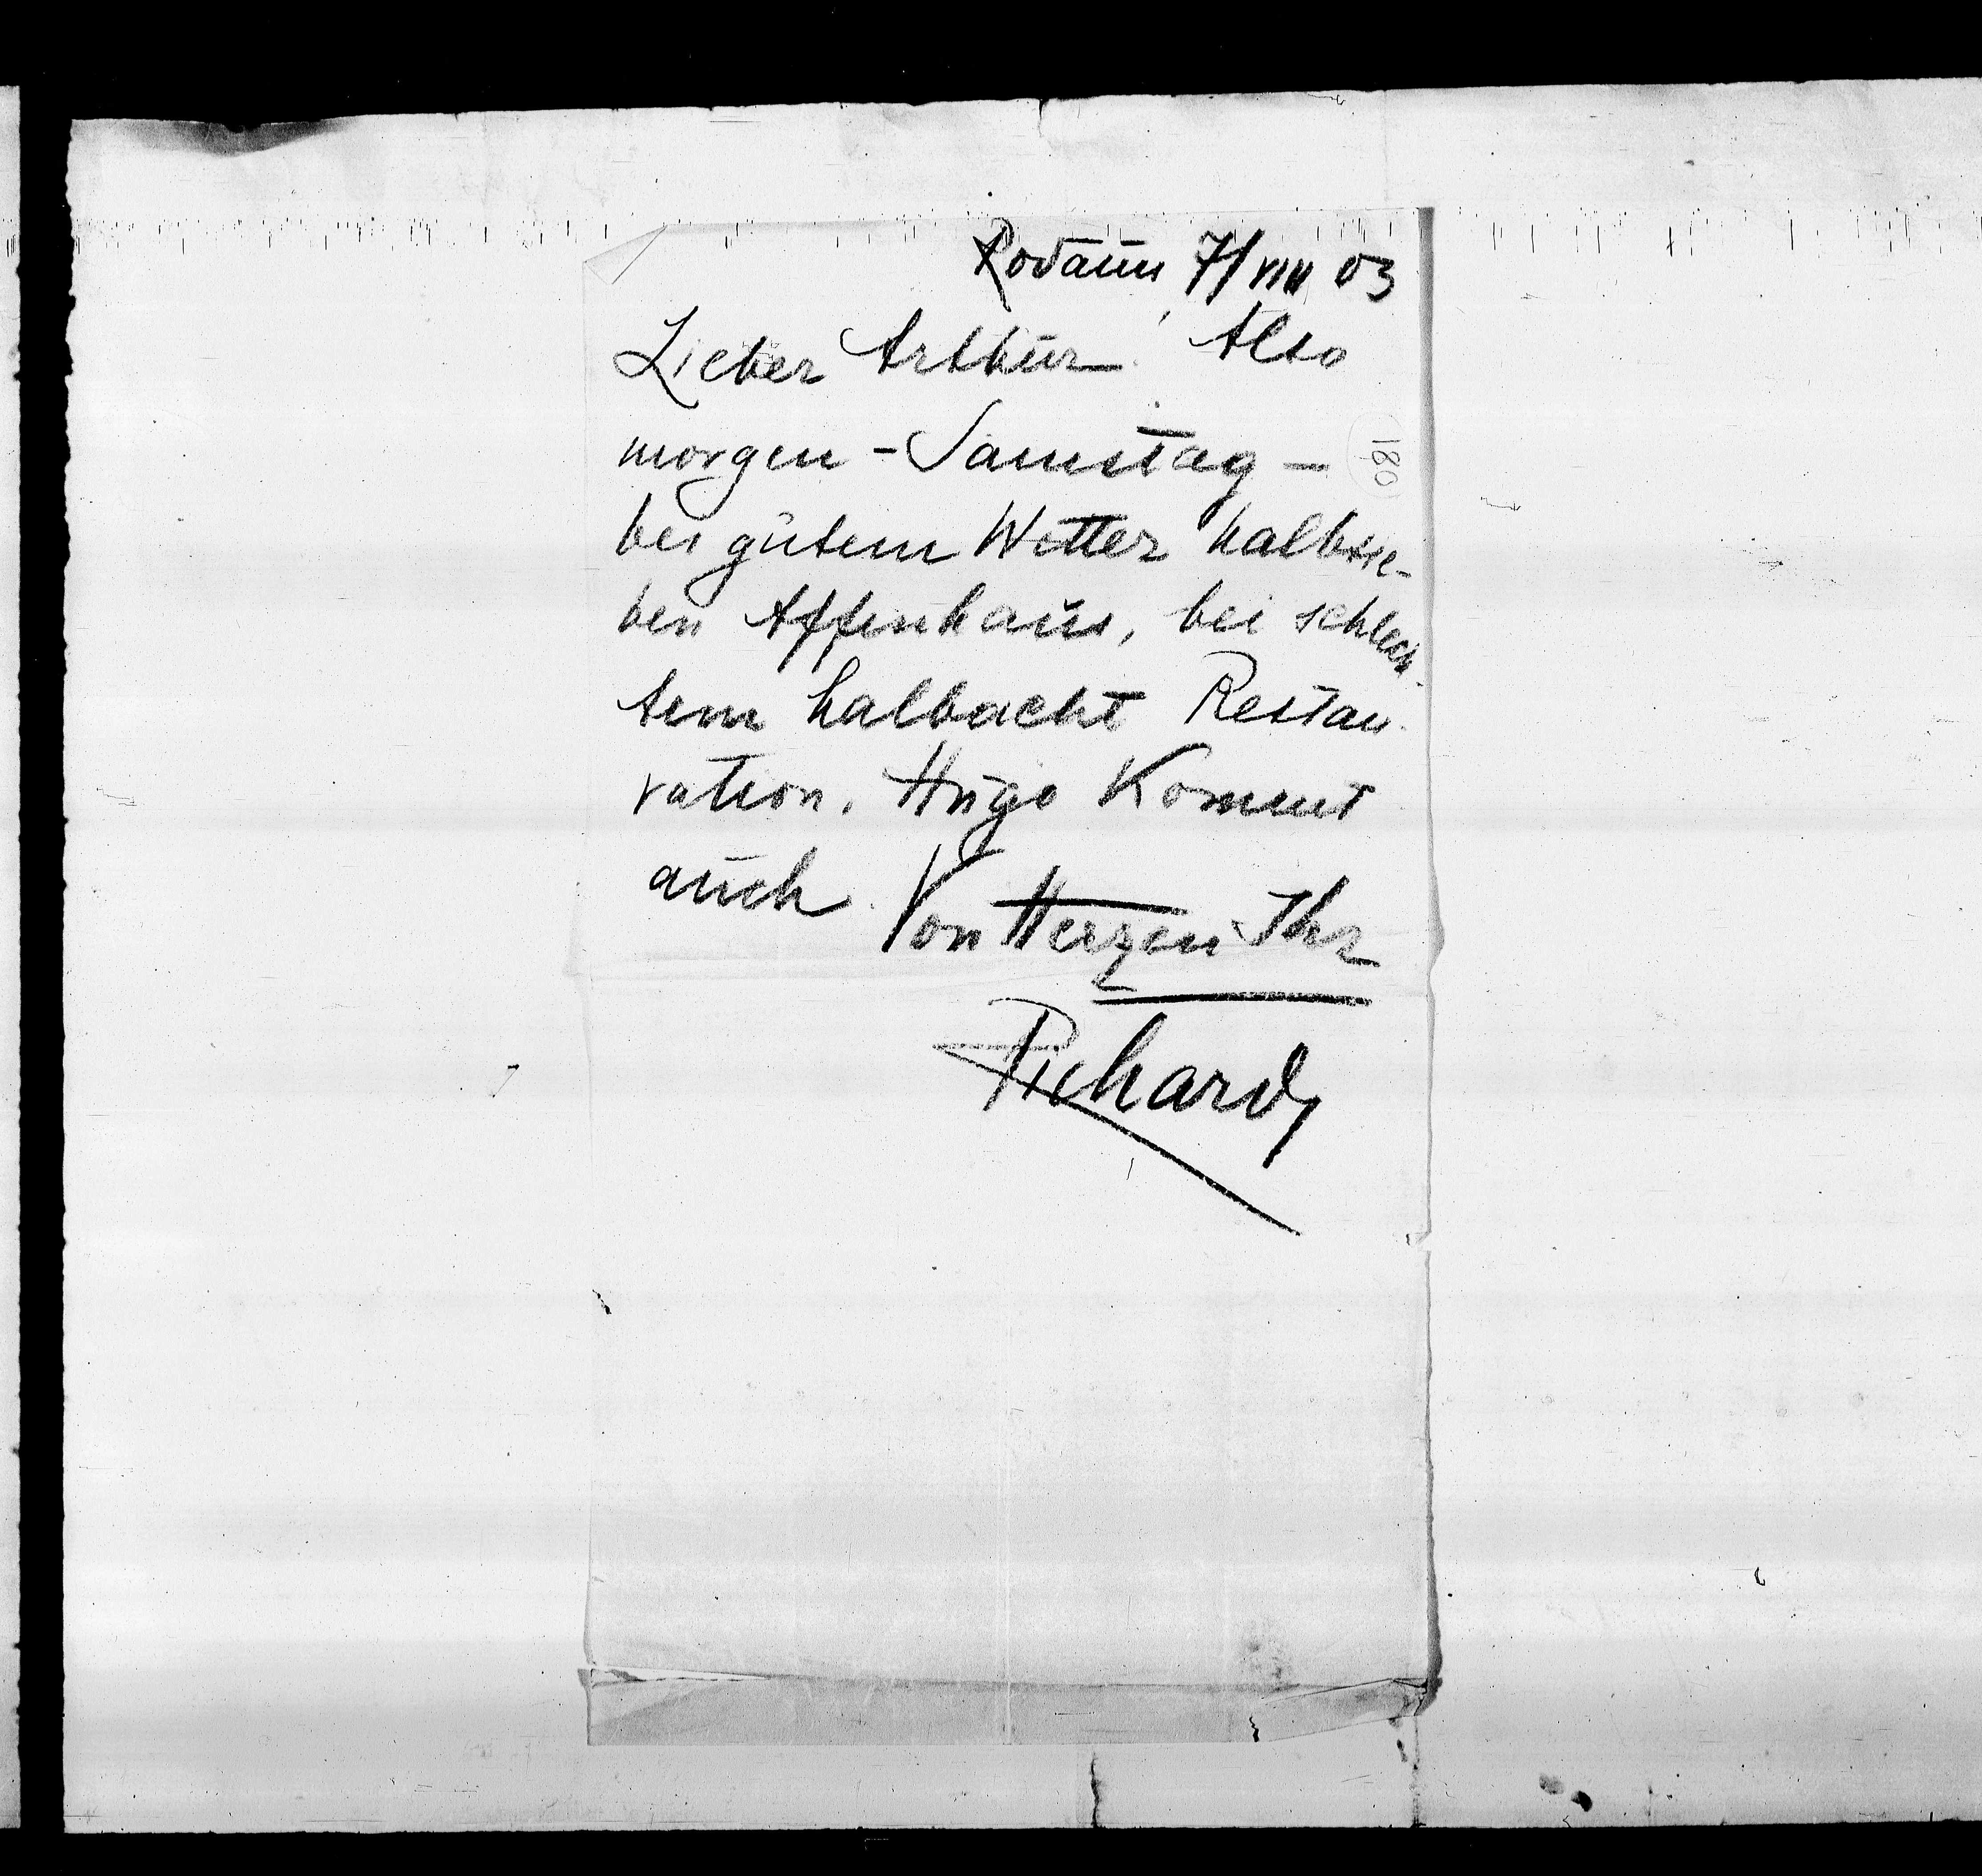 Rodaun 7/VIII 03
Lieber Arthur! Also
morgen - Samstag -
bei gutem Wetter halbsie-
ben Affenhaus, bei schlech-
tem halbacht Restau-
ration. Hugo kommt
auch. Von Herzen Ihr
Richard
180